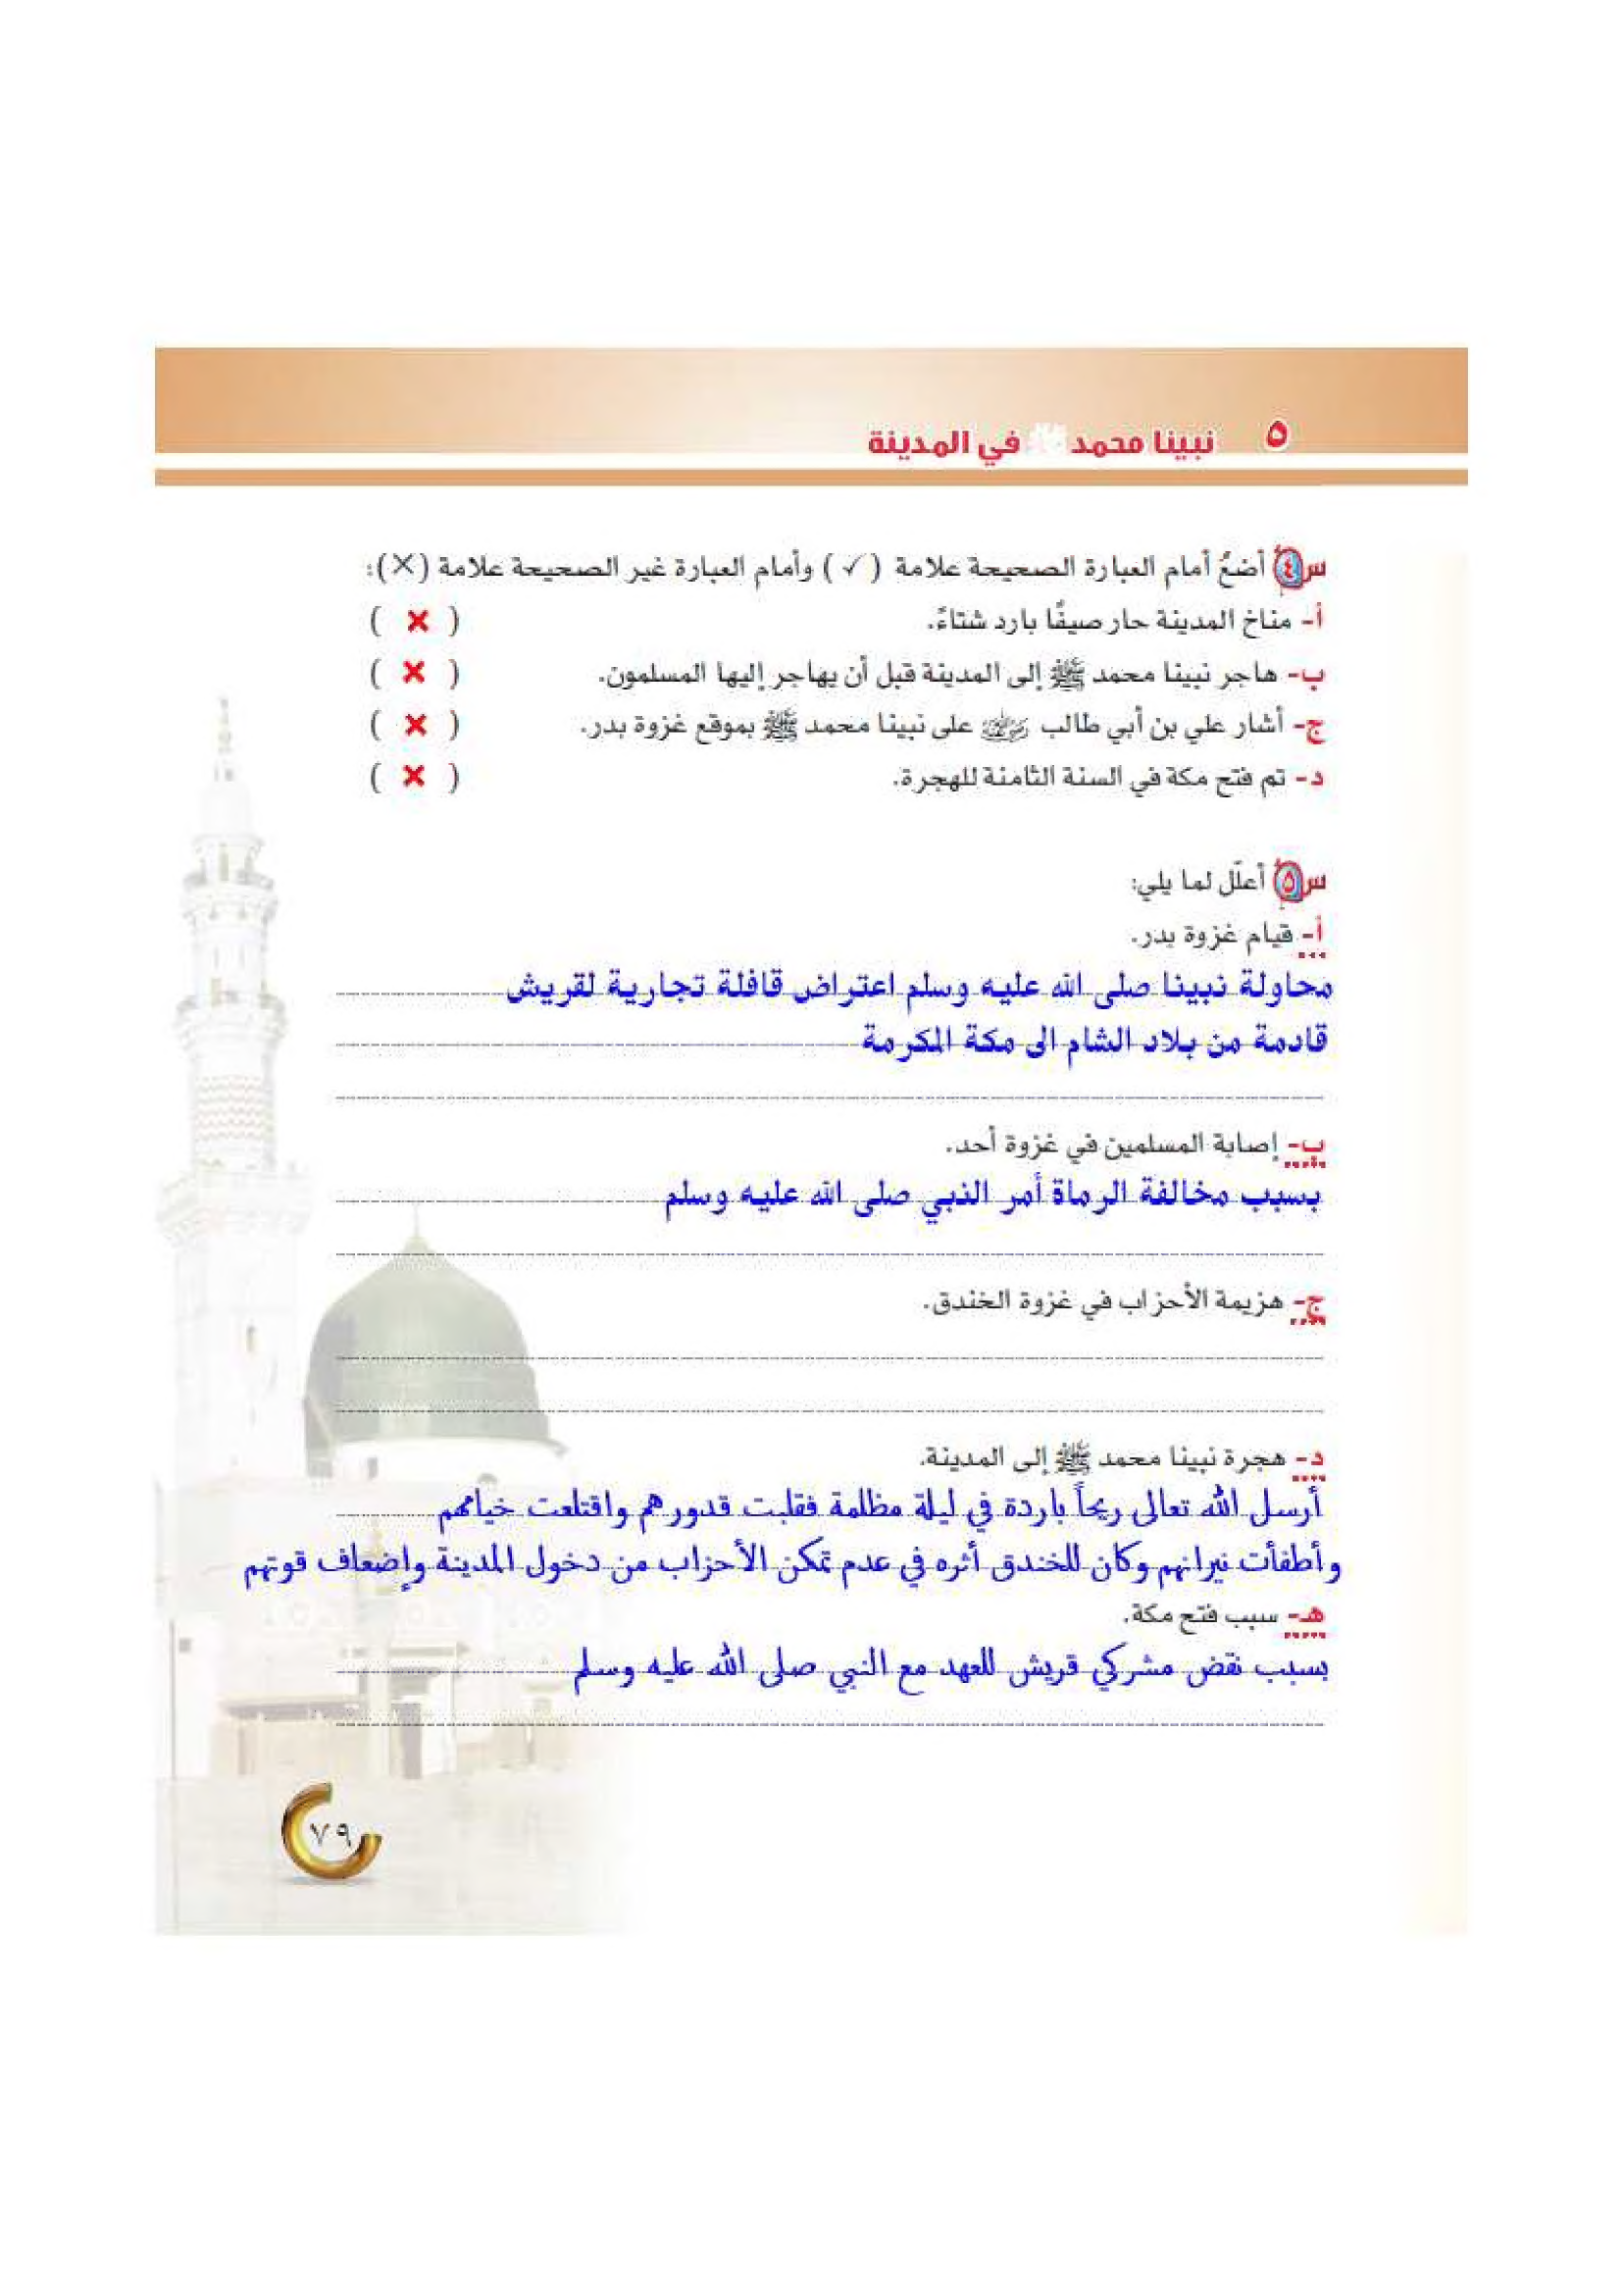 ٥ نبينا محمد ﷺ في المدينة
س٤ أضعُ أمام العبارة الصحيحة علامة (✓) وأمام العبارة غير الصحيحة علامة (✗):
أ- مناخ المدينة حار صيفًا بارد شتاءً. ( ✗ )
ب- هاجر نبينا محمد ﷺ إلى المدينة قبل أن يهاجر إليها المسلمون. ( ✗ )
ج- أشار علي بن أبي طالب رضي الله عنه على نبينا محمد ﷺ بموقع غزوة بدر. ( ✗ )
د- تم فتح مكة في السنة الثامنة للهجرة. ( ✗ )
س٥ أعلّل لما يلي:
أ- قيام غزوة بدر.
محاولة نبينا صلى الله عليه وسلم اعتراض قافلة تجارية لقريش
قادمة من بلاد الشام الى مكة المكرمة
ب- إصابة المسلمين في غزوة أحد.
بسبب مخالفة الرماة أمر النبي صلى الله عليه وسلم
ج- هزيمة الأحزاب في غزوة الخندق.
د- هجرة نبينا محمد ﷺ إلى المدينة.
أرسل الله تعالى ريحاً باردة في ليلة مظلمة فقلبت قدورهم واقتلعت خيامهم
وأطفأت نيرانهم وكان للخندق أثره في عدم تمكن الأحزاب من دخول المدينة وإضعاف قوتهم
هـ- سبب فتح مكة.
بسبب نقض مشركي قريش للعهد مع النبي صلى الله عليه وسلم
٧٩